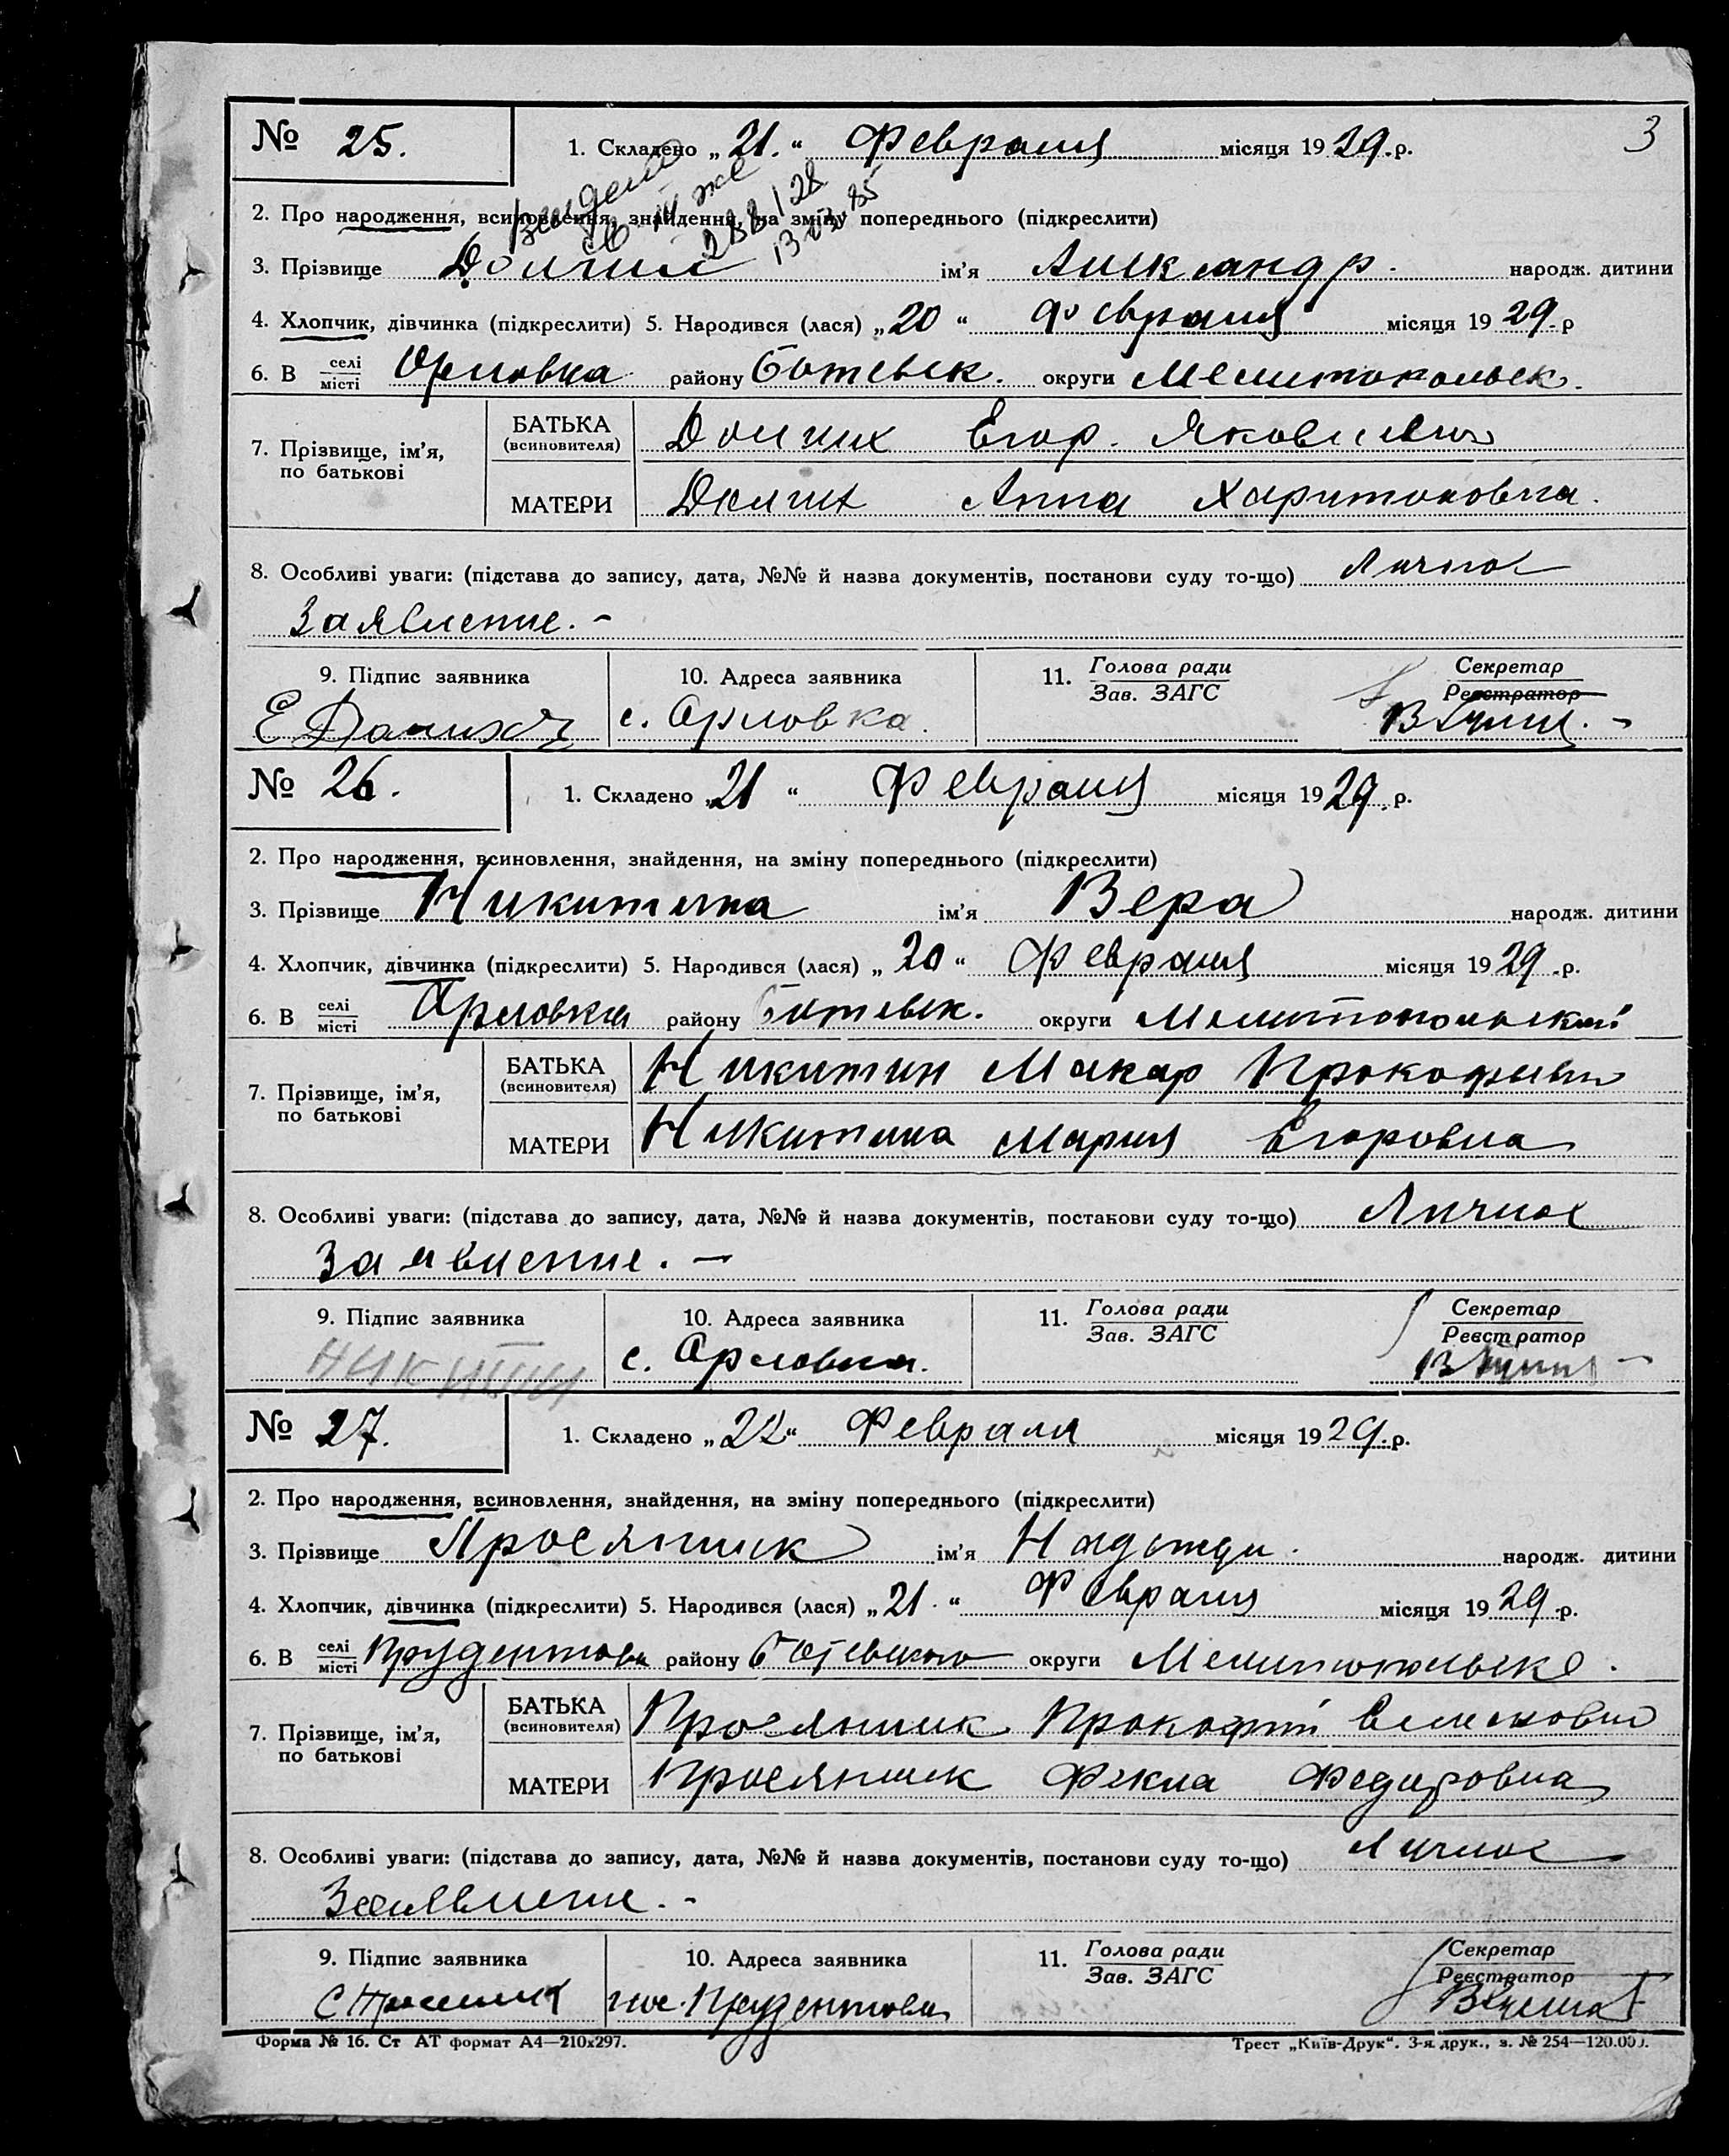 3
№ 25. 1. Складено „21.“ Февраля місяця 1929.р.
2. Про народження, всиновлення, знайдення, на зміну попереднього (підкреслити)
св. же 288/28
13.03.85
3. Прізвище Долгих ім'я Александр. народж. дитини
4. Хлопчик, дівчинка (підкреслити) 5. Народився (лася) „20“ Февраля місяця 1929.р
6. В селі/місті Орловка району Ботевск. округи Мелитопольск.
7. Прізвище, ім'я, по батькові
БАТЬКА (всиновителя) Долгих Егор. Яковлевич
МАТЕРИ Долгих Анна Харитоновна.
8. Особливі уваги: (підстава до запису, дата, №№ й назва документів, постанови суду то-що) Личное
Заявление. –
9. Підпис заявника 10. Адреса заявника 11. Голова ради/Зав. ЗАГС Секретар/Реєстратор
Е Долгих с. Орловка.
№ 26. 1. Складено „21“ Февраля місяця 1929.р.
2. Про народження, всиновлення, знайдення, на зміну попереднього (підкреслити)
3. Прізвище Никитина ім'я Вера народж. дитини
4. Хлопчик, дівчинка (підкреслити) 5. Народився (лася) „20“ Февраля місяця 1929.р.
6. В селі/місті Орловка району Ботевск. округи Мелитопольской
7. Прізвище, ім'я, по батькові
БАТЬКА (всиновителя) Никитин Макар Прокофьевич
МАТЕРИ Никитина Мария Егоровна
8. Особливі уваги: (підстава до запису, дата, №№ й назва документів, постанови суду то-що) Личное
Заявление. –
9. Підпис заявника 10. Адреса заявника 11. Голова ради/Зав. ЗАГС Секретар/Реєстратор
Никитин с. Орловка.
№ 27. 1. Складено „22“ Февраля місяця 1929.р.
2. Про народження, всиновлення, знайдення, на зміну попереднього (підкреслити)
3. Прізвище Просяник ім'я Надежда. народж. дитини
4. Хлопчик, дівчинка (підкреслити) 5. Народився (лася) „21.“ Февраля місяця 1929.р.
6. В селі/місті Прудентова району Ботевского округи Мелитопольск.
7. Прізвище, ім'я, по батькові
БАТЬКА (всиновителя) Просяник Прокофий
МАТЕРИ Просяник Фекла Федоровна
8. Особливі уваги: (підстава до запису, дата, №№ й назва документів, постанови суду то-що) Личное
Заявление. –
9. Підпис заявника 10. Адреса заявника 11. Голова ради/Зав. ЗАГС Секретар/Реєстратор
пос. Прудентова
Форма № 16. Ст АТ формат А4—210x297. Трест „Київ-Друк“. 3-я друк., з. № 254—120.000.